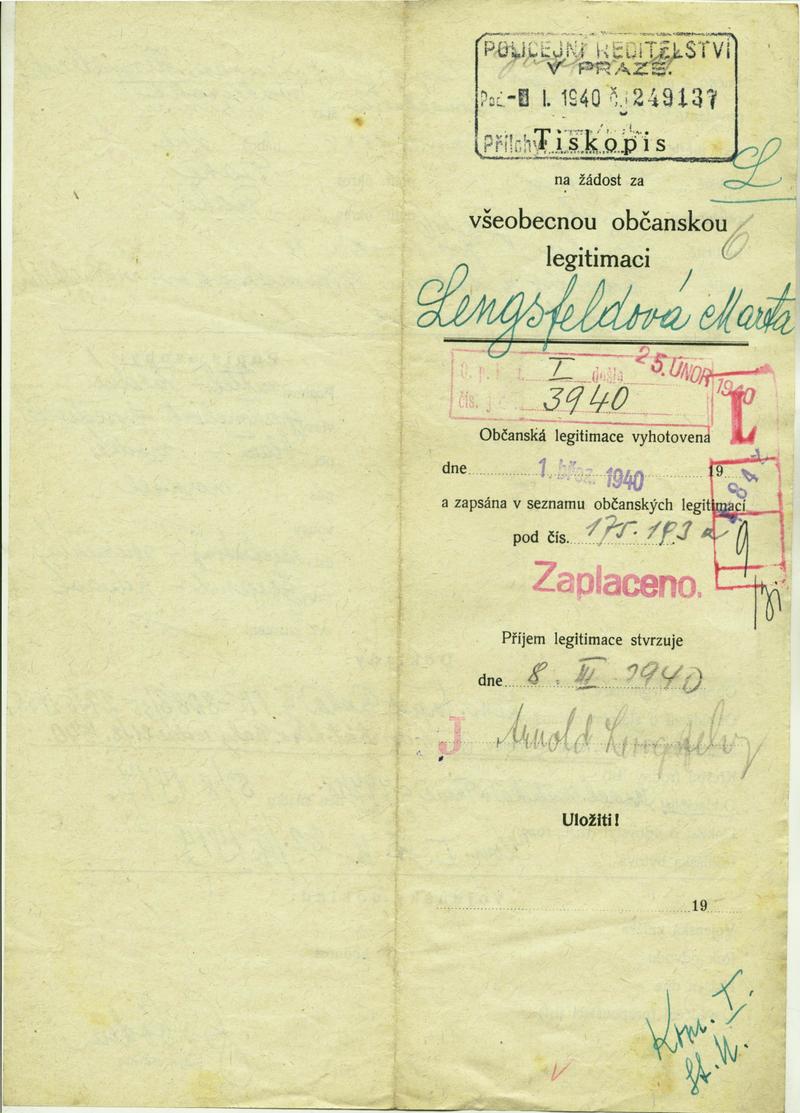 POLICEJNÍ ŘEDITELSTVÍ
V PRAZE.
I. 1940 Č.j. 249137
Přílohy
Tiskopis
L
na žádost za
všeobecnou občanskou
6
legitimaci
Lengsfeldová Marta
25. ÚNOR 1940
I došla
čís. j. 3940
L
Občanská legitimace vyhotovena
dne 1. břez. 1940 19
a zapsána v seznamu občanských legitimací
pod čís. 175.193 a
9
Zaplaceno.
Příjem legitimace stvrzuje
dne 8. III 1940
J Arnold
Uložiti!
19
Kom. I.
St. M.